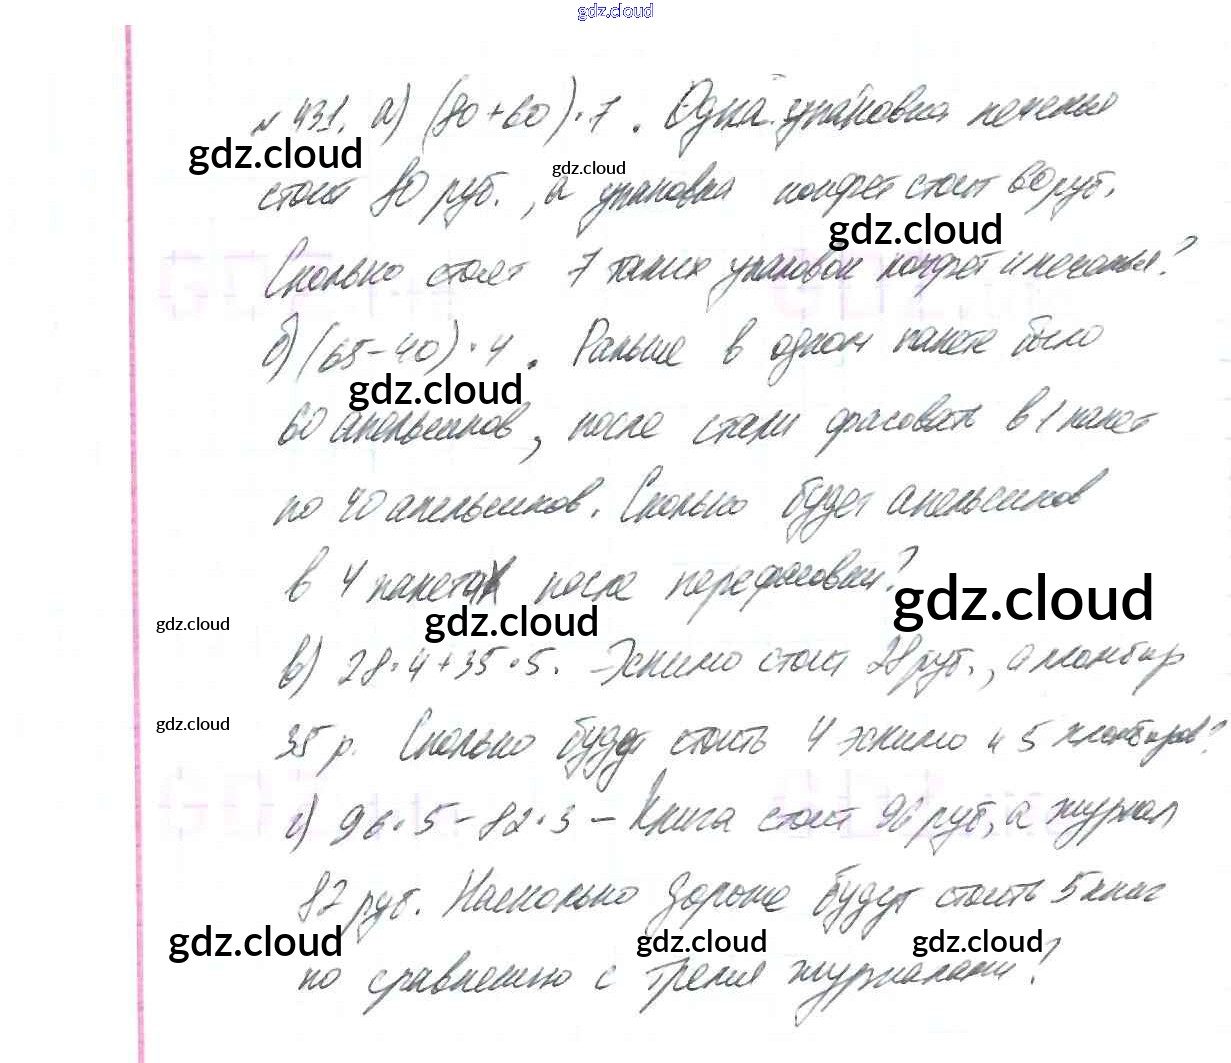 gdz.cloud
№ 431. а) (80+60)·7. Одна упаковка печенья
gdz.cloud
gdz.cloud
стоит 80 руб., а упаковка конфет стоит 60 руб.
gdz.cloud
Сколько стоят 7 таких упаковок конфет и печенья?
б) (65-40)·4. Раньше в одном пакете было
gdz.cloud
60 апельсинов, после стали фасовать в 1 пакет
по 40 апельсинов. Сколько будет апельсинов
в 4 пакетах после перефасовки?
gdz.cloud
gdz.cloud
gdz.cloud
в) 28·4+35·5. Эскимо стоит 28 руб., а пломбир
gdz.cloud
35 р. Сколько будут стоить 4 эскимо и 5 пломбиров?
г) 96·5-82·3 – Книга стоит 96 руб, а журнал
82 руб. Насколько дороже будут стоить 5 книг
gdz.cloud
gdz.cloud
gdz.cloud
по сравнению с тремя журналами?